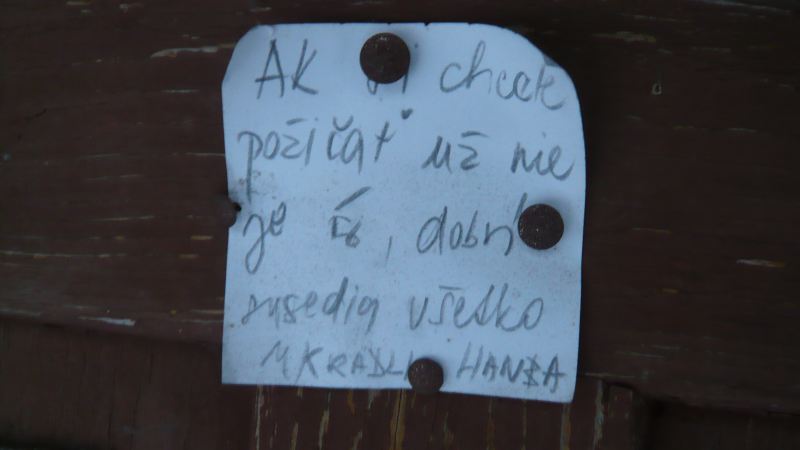 AK si chcete
požičať už nie
je čo, dobrí
susedia všetko
UKRADLI HANBA